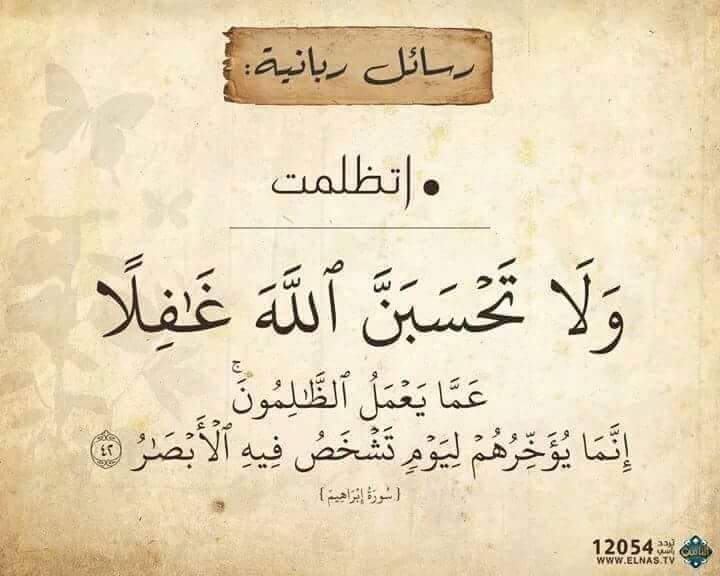 رسائل ربانية:
• اتظلمت
وَلَا تَحْسَبَنَّ ٱللَّهَ غَٰفِلًا
عَمَّا يَعْمَلُ ٱلظَّٰلِمُونَ ۚ
إِنَّمَا يُؤَخِّرُهُمْ لِيَوْمٍ تَشْخَصُ فِيهِ ٱلْأَبْصَٰرُ ٤٢
{ سُورَةُ إِبْرَاهِيم }
تردد رأسي 12054
WWW.ELNAS.TV
الناس